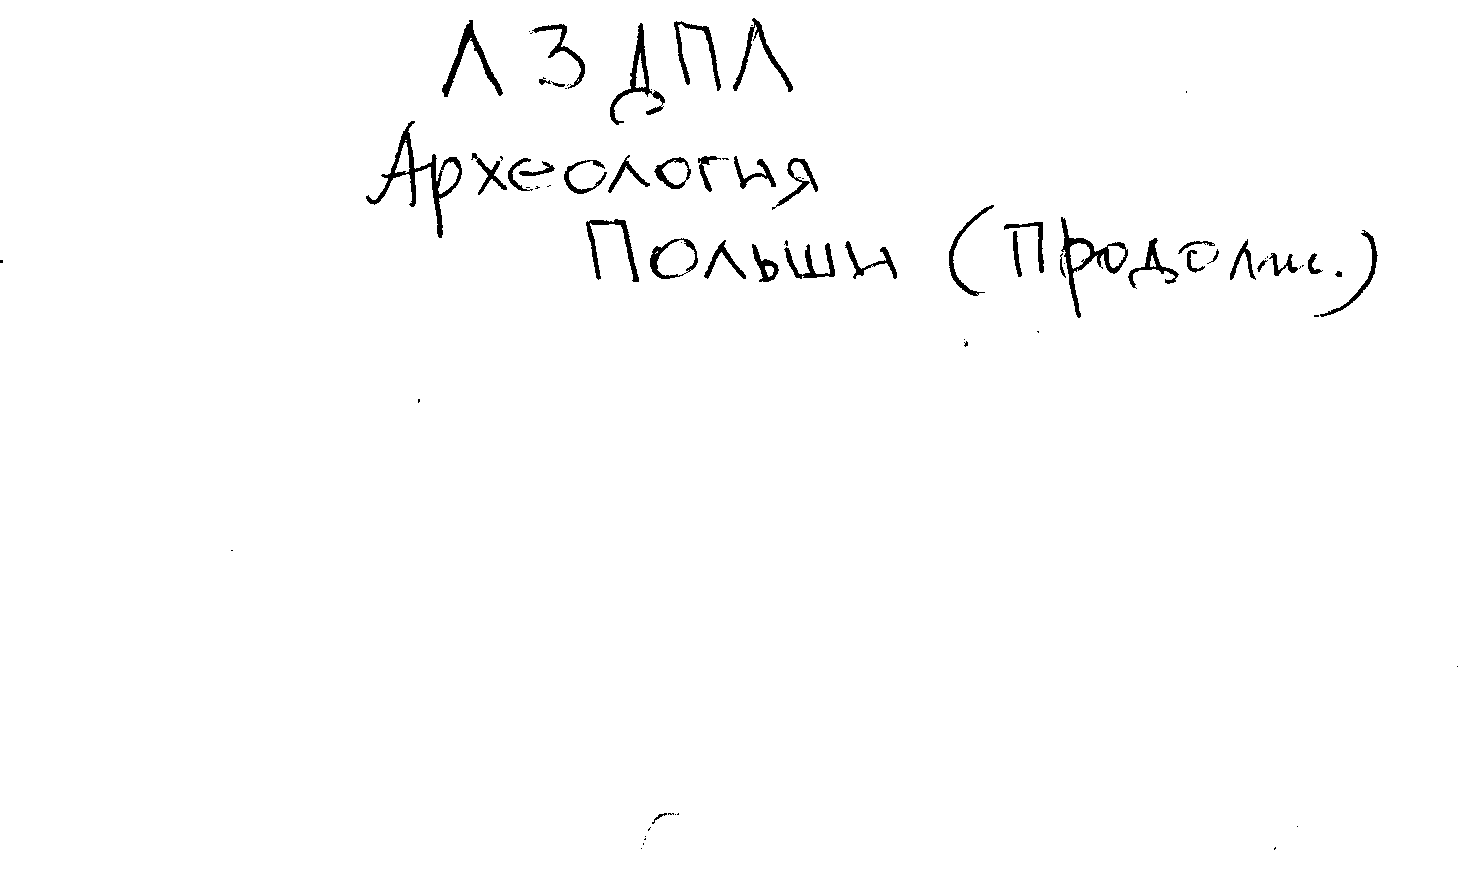 ЛЗДПЛ
Археология
Польши (Продолж.)